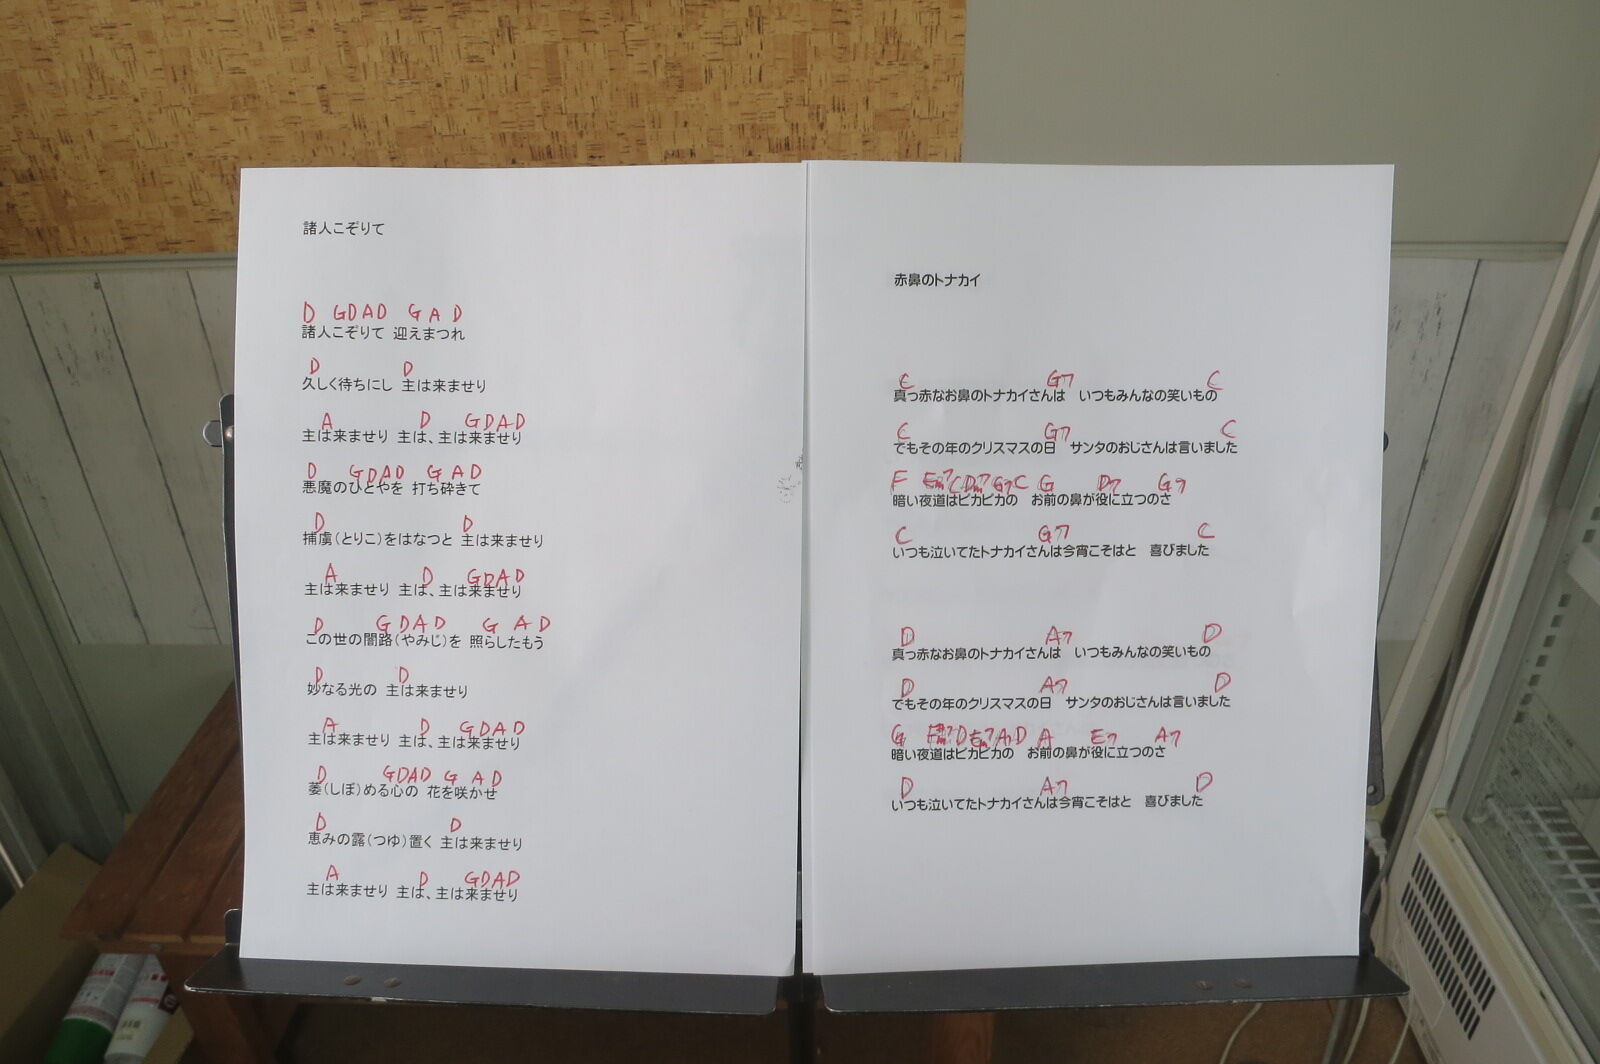 諸人こぞりて
D GDAD G A D
諸人こぞりて 迎えまつれ
D D
久しく待ちにし 主は来ませり
A D GDAD
主は来ませり 主は、主は来ませり
D GDAD G A D
悪魔のひとやを 打ち砕きて
D D
捕虜(とりこ)をはなつと 主は来ませり
A D GDAD
主は来ませり 主は、主は来ませり
D GDAD G A D
この世の闇路(やみじ)を 照らしたもう
D D
妙なる光の 主は来ませり
A D GDAD
主は来ませり 主は、主は来ませり
D GDAD G A D
萎(しぼ)める心の 花を咲かせ
D D
恵みの露(つゆ)置く 主は来ませり
A D GDAD
主は来ませり 主は、主は来ませり
赤鼻のトナカイ
C G7 C
真っ赤なお鼻のトナカイさんは いつもみんなの笑いもの
C G7 C
でもその年のクリスマスの日 サンタのおじさんは言いました
F Em7 C Dm7 G7 C G D7 G7
暗い夜道はピカピカの お前の鼻が役に立つのさ
C G7 C
いつも泣いてたトナカイさんは今宵こそはと 喜びました
D A7 D
真っ赤なお鼻のトナカイさんは いつもみんなの笑いもの
D A7 D
でもその年のクリスマスの日 サンタのおじさんは言いました
G F#m7 D Em7 A7 D A E7 A7
暗い夜道はピカピカの お前の鼻が役に立つのさ
D A7 D
いつも泣いてたトナカイさんは今宵こそはと 喜びました